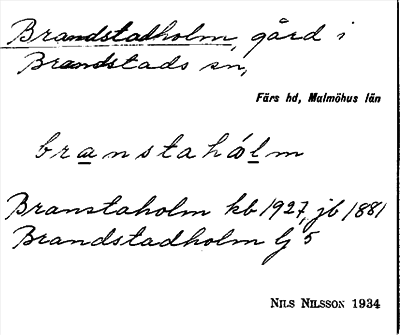 Brandstadholm, gård i
Brandstads sn,
Färs hd, Malmöhus län
branstahólm
Branstaholm kb 1927, jb 1881
Brandstadholm Gj 5
NILS NILSSON 1934